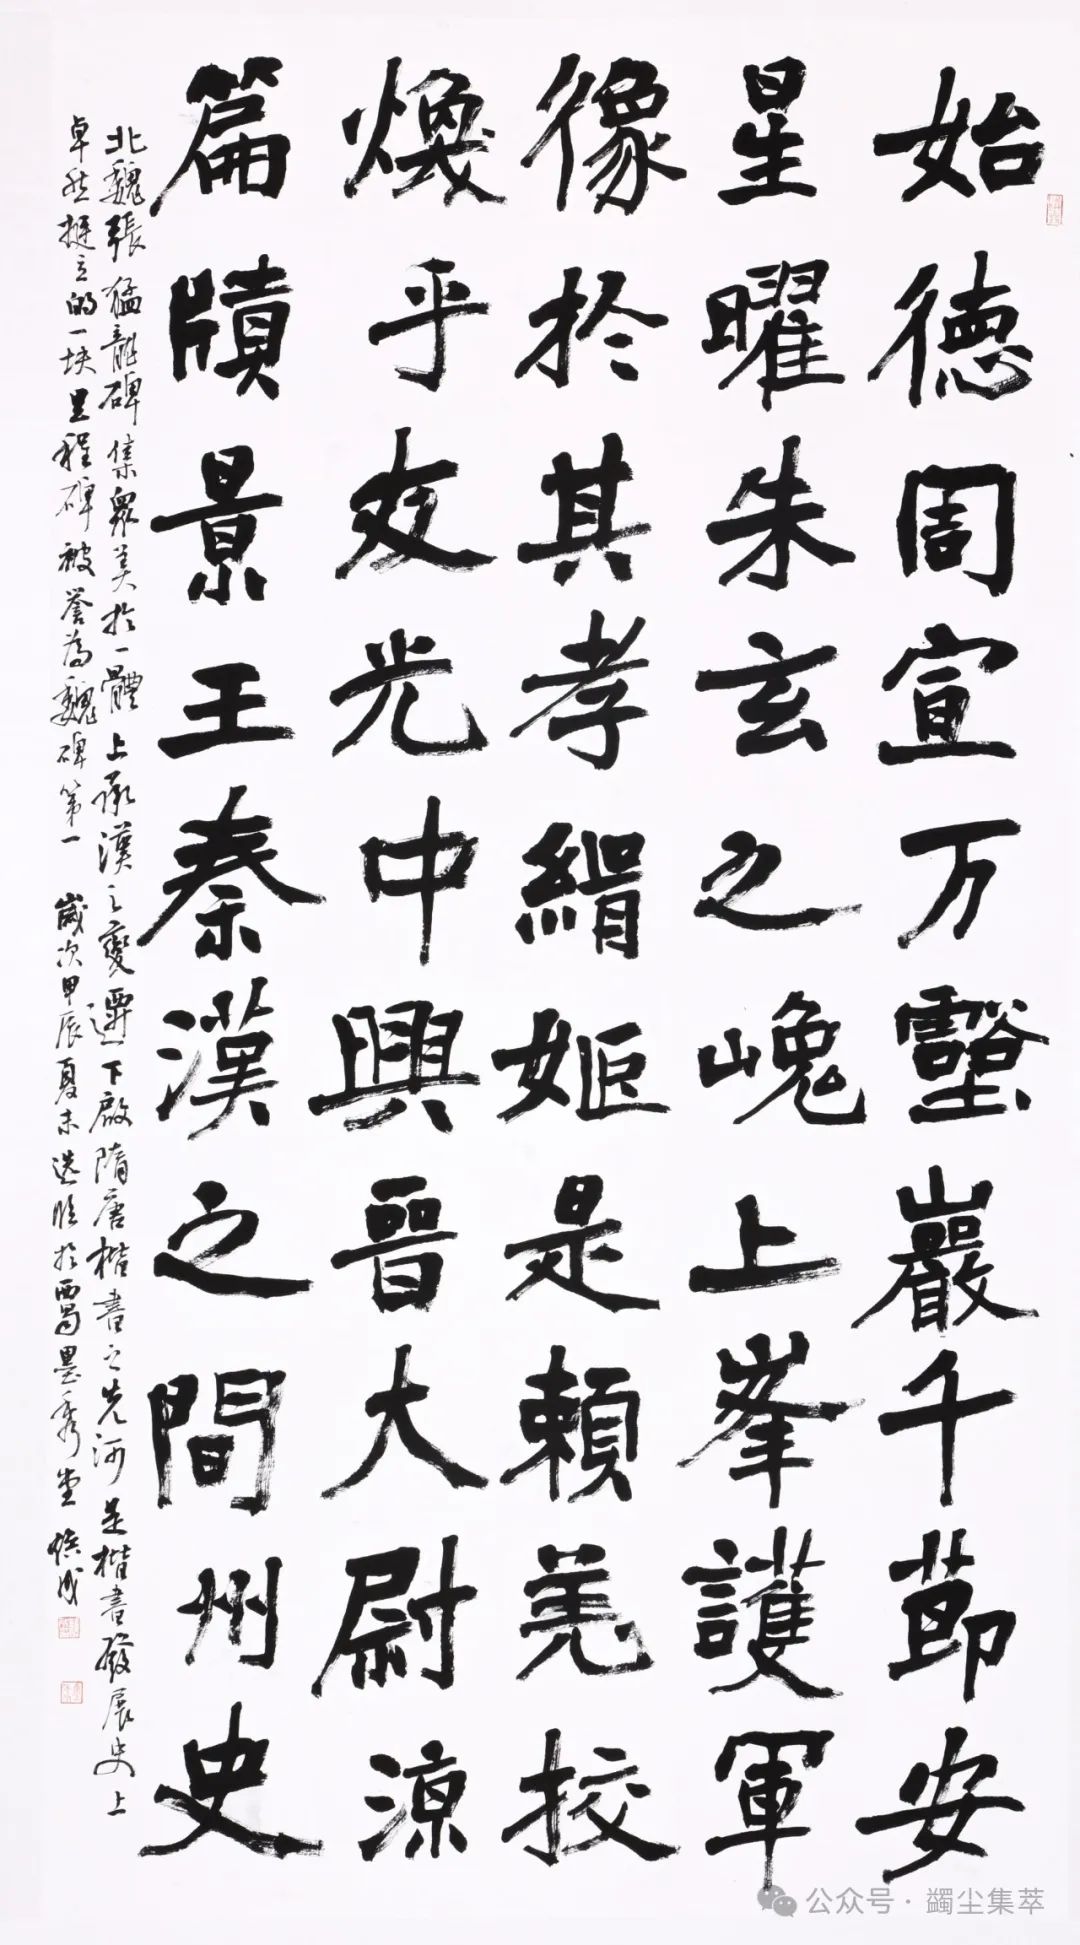 始德周宣万壑巖千節安
星曜朱玄之巉上峯護軍
像於其孝緝姬是賴羌挍
煥乎友光中興晉大尉涼
篇牘景王秦漢之間州史
北魏張猛龍碑集衆美於一體上承漢之變遷下啟隋唐楷書之先河是楷書發展史上
卓然挺立的一块里程碑被誉為魏碑第一 歲次甲辰夏末选临於蜀墨秀堂
公众号·蠲尘集萃